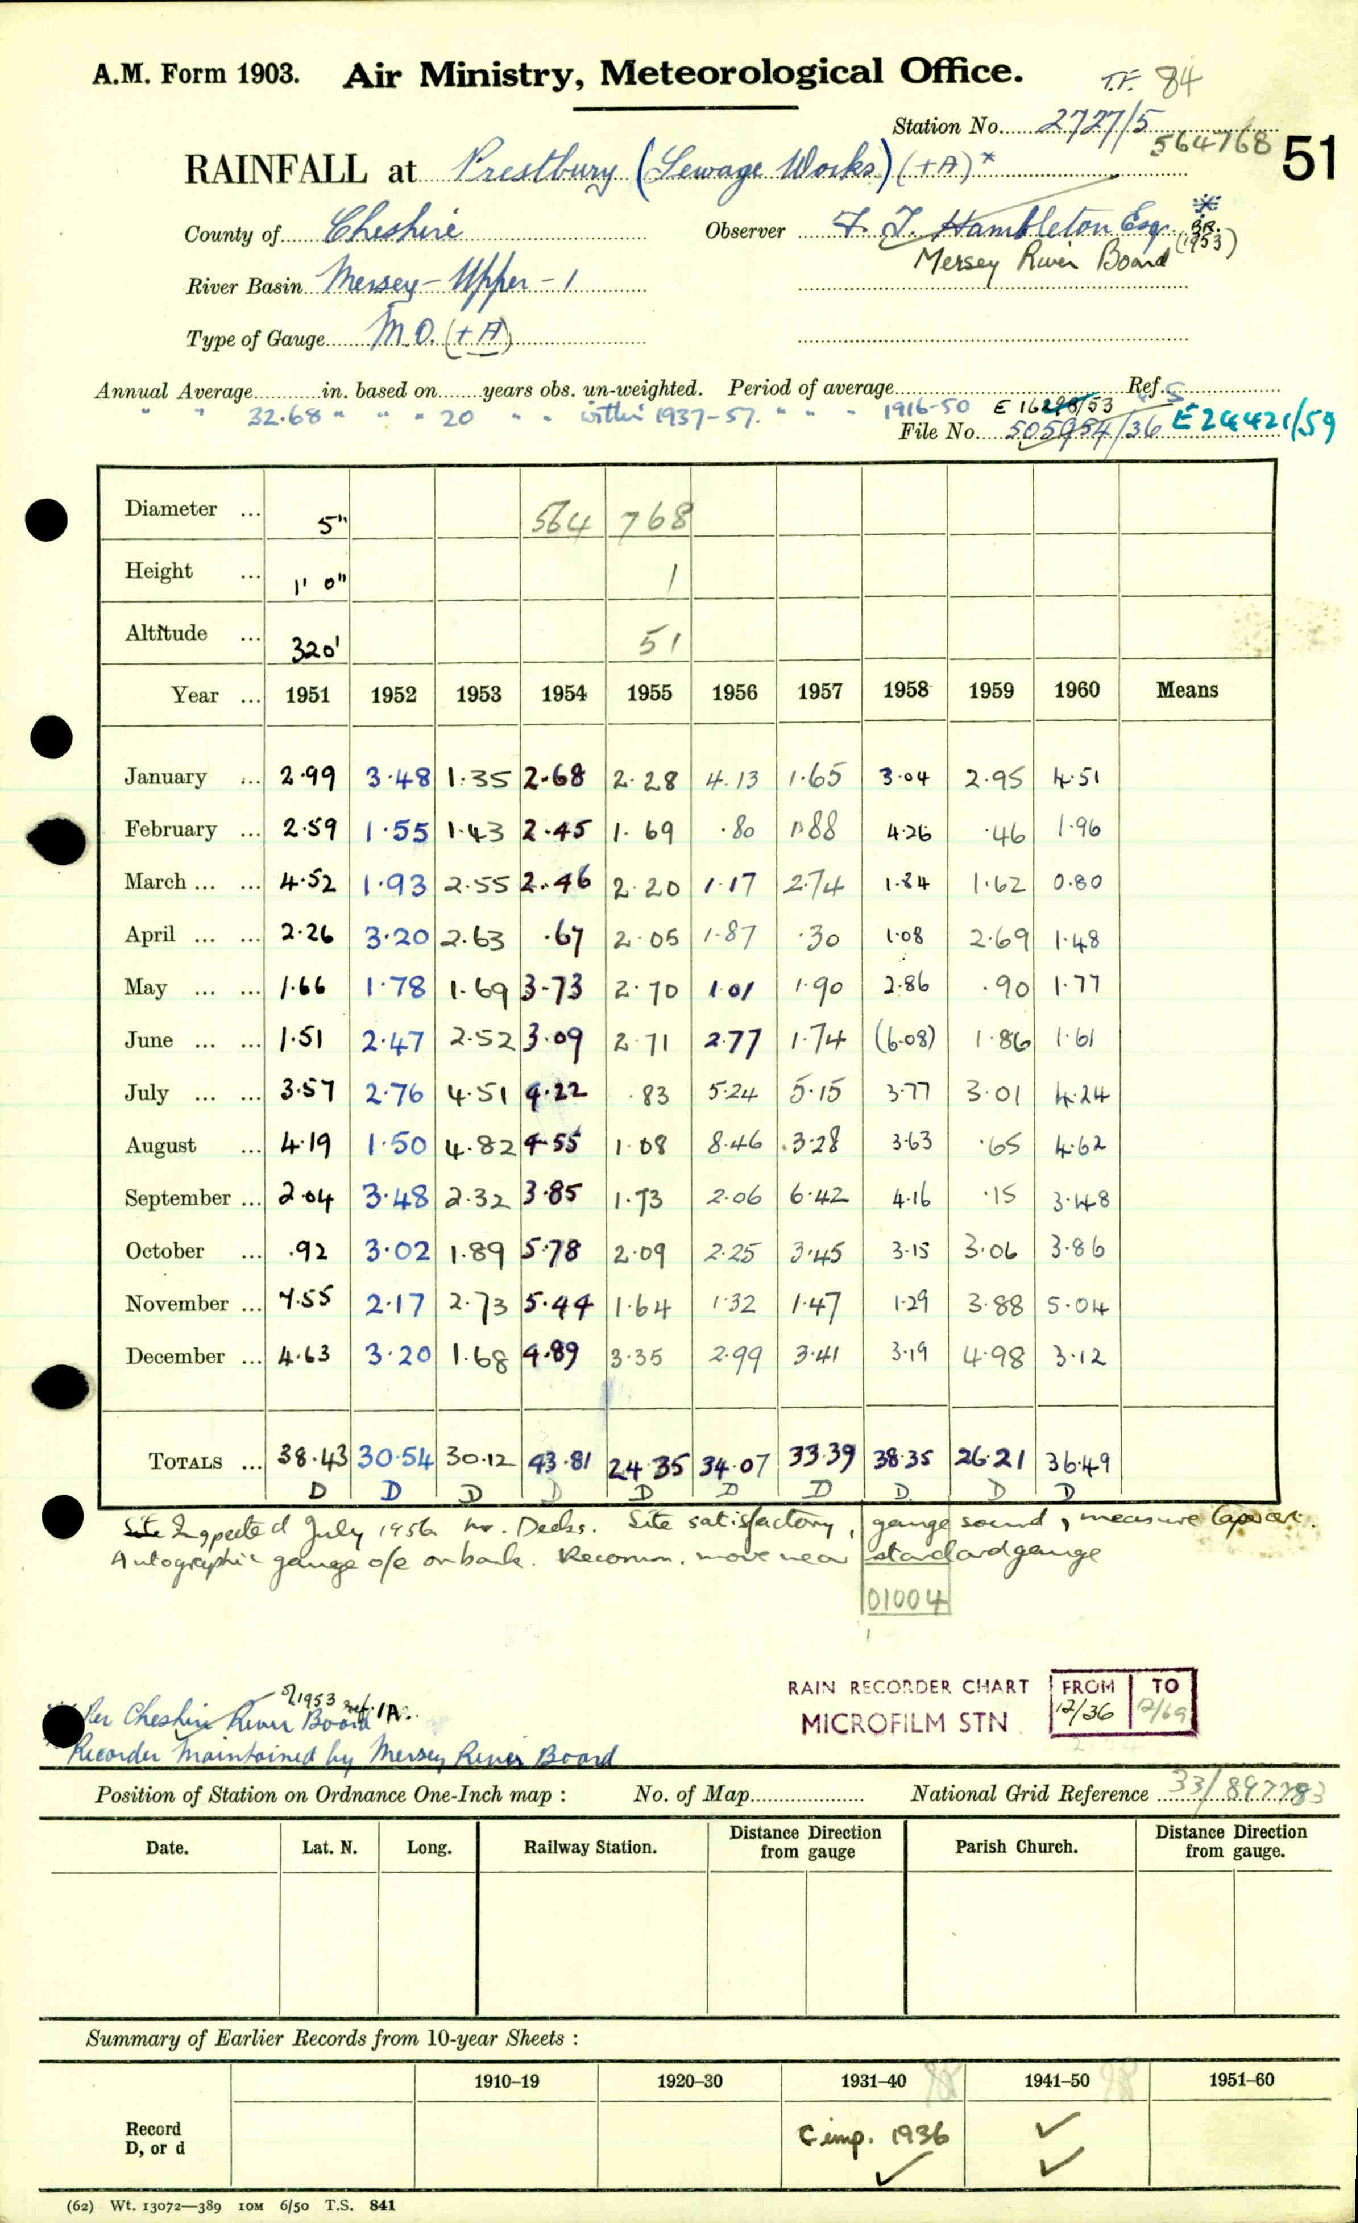 A.M. Form 1903. Air Ministry, Meteorological Office. T.F. 84
Station No. 2727/5
564768 51
RAINFALL at Prestbury (Sewage Works) (+A)*
County of Cheshire Observer F. J. Hambleton Esq. B.R. (1953)
Mersey River Board
River Basin Mersey - Upper - 1
Type of Gauge M.O. (+A)
Annual Average in. based on years obs. un-weighted. Period of average Ref. S
" " 32.68 " " " 20 " " within 1937-57. " " " 1916-50 E 16298/53
File No. 505954/36 E24421/59
Diameter ... 5" 564 768
Height ... 1' 0" 1
Altitude ... 320' 51
Year ... 1951 1952 1953 1954 1955 1956 1957 1958 1959 1960 Means
January ... 2.99 3.48 1.35 2.68 2.28 4.13 1.65 3.04 2.95 4.51
February ... 2.59 1.55 1.43 2.45 1.69 .80 1.88 4.26 .46 1.96
March ... ... 4.52 1.93 2.55 2.46 2.20 1.17 2.74 1.84 1.62 0.80
April ... ... 2.26 3.20 2.63 .67 2.05 1.87 .30 1.08 2.69 1.48
May ... ... 1.66 1.78 1.69 3.73 2.70 1.01 1.90 2.86 .90 1.77
June ... ... 1.51 2.47 2.52 3.09 2.71 2.77 1.74 (6.08) 1.86 1.61
July ... ... 3.57 2.76 4.51 4.22 .83 5.24 5.15 3.77 3.01 4.24
August ... 4.19 1.50 4.82 4.55 1.08 8.46 3.28 3.63 .65 4.62
September ... 2.04 3.48 2.32 3.85 1.73 2.06 6.42 4.16 .15 3.48
October ... .92 3.02 1.89 5.78 2.09 2.25 3.45 3.15 3.06 3.86
November ... 7.55 2.17 2.73 5.44 1.64 1.32 1.47 1.29 3.88 5.04
December ... 4.63 3.20 1.68 4.89 3.35 2.99 3.41 3.19 4.98 3.12
TOTALS ... 38.43 30.54 30.12 43.81 24.35 34.07 33.39 38.35 26.21 36.49
D D D D D D D D D D
Site Inspected July 1956 Mr. Deeks. Site satisfactory, gauge sound, measure
Autographic gauge o/e on bank. Recomm. move near standard gauge
01004
RAIN RECORDER CHART FROM TO
MICROFILM STN 12/36 12/69
1953 ref. 1A.
Per Cheshire River Board
Recorder Maintained by Mersey River Board
Position of Station on Ordnance One-Inch map : No. of Map National Grid Reference 33/897783
Date. Lat. N. Long. Railway Station. Distance Direction from gauge Parish Church. Distance Direction from gauge.
Summary of Earlier Records from 10-year Sheets :
1910–19 1920–30 1931–40 1941–50 1951–60
Record
D, or d
C imp. 1936 ✓ ✓
✓
(62) Wt. 13072—389 10M 6/50 T.S. 841